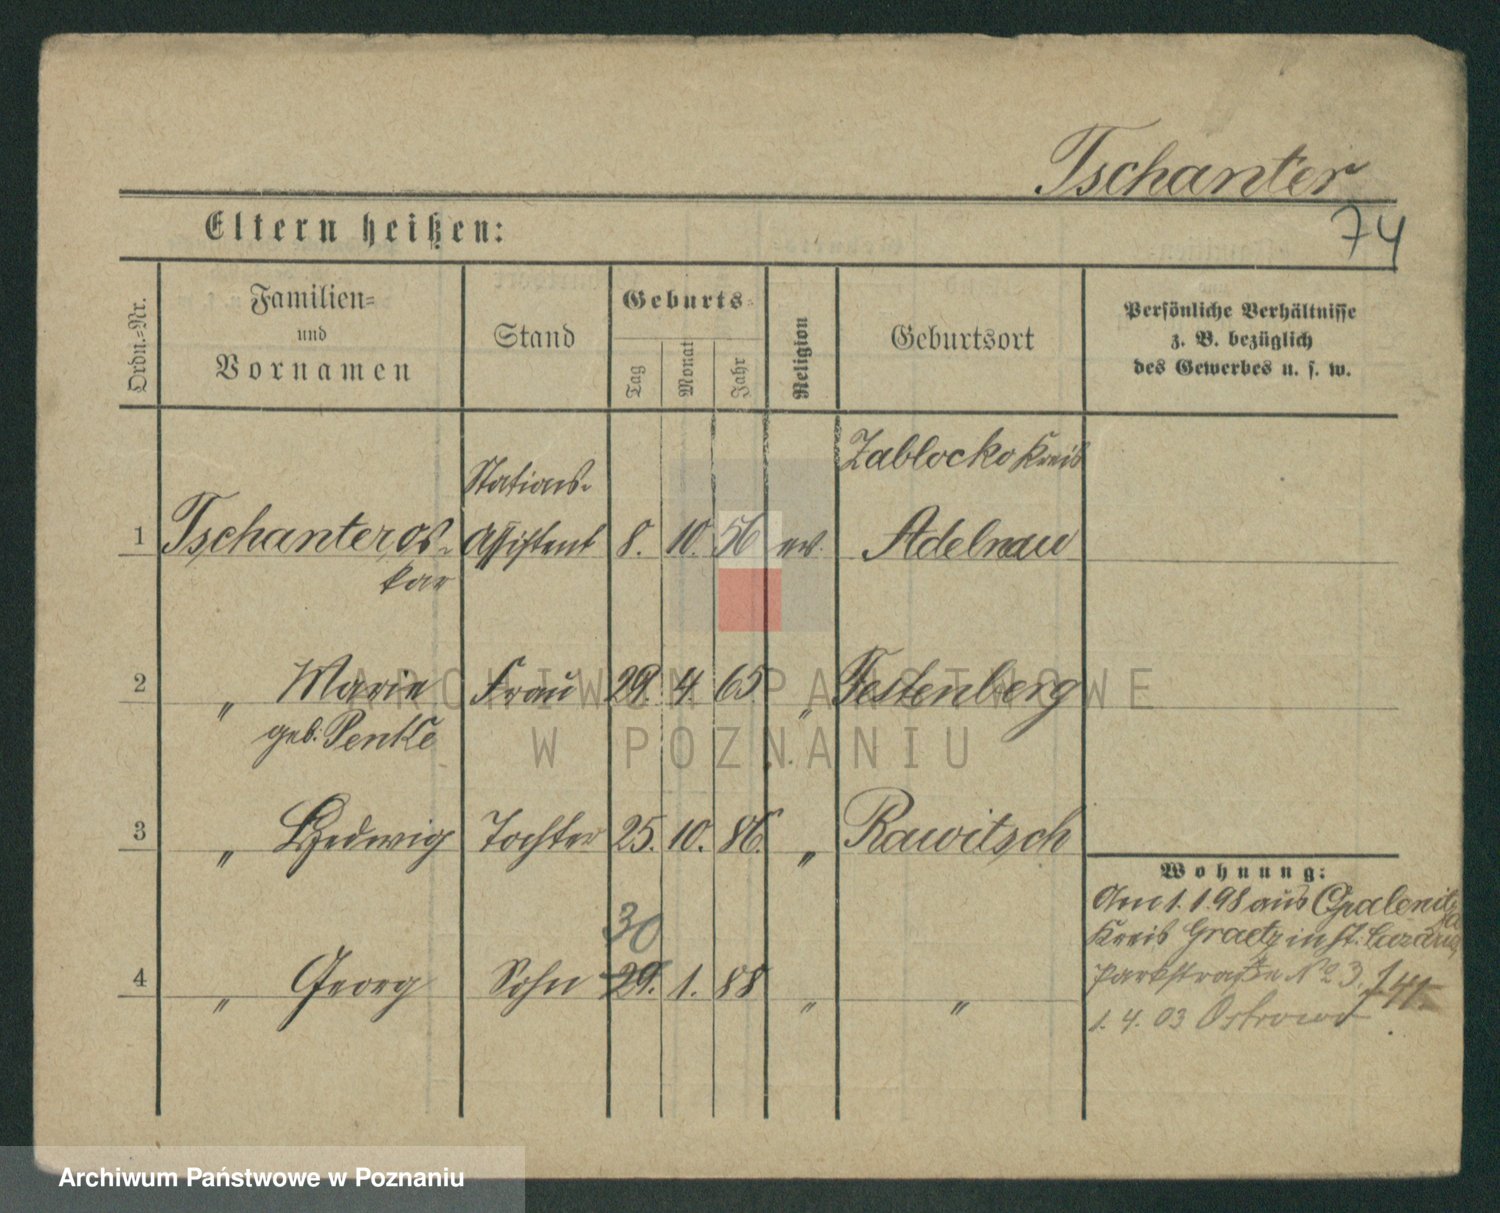 Tschanter
74
Eltern heißen:
Ordn.=Nr.
Familien=
und
Vornamen
Stand
Geburts=
Tag
Monat
Jahr
Religion
Geburtsort
Persönliche Verhältnisse
z. B. bezüglich
des Gewerbes u. s. w.
Stations-
Zablocko Kreis
1 Tschanter Os- Assistent 8. 10. 56 ev. Adelnau
kar
2 " Marie Frau 29. 4. 65. " Festenberg
geb. Pentke
3 " Hedwig Tochter 25. 10. 86. " Rawitsch
30
4 " Georg Sohn 29. 1. 88 " "
Wohnung:
Am 1.1.98 aus Opalenitza
Kreis Graetz in St. Lazarus,
Parkstraße No 3,
1. 4. 03 Ostrowo
ARCHIWUM PAŃSTWOWE
W POZNANIU
Archiwum Państwowe w Poznaniu